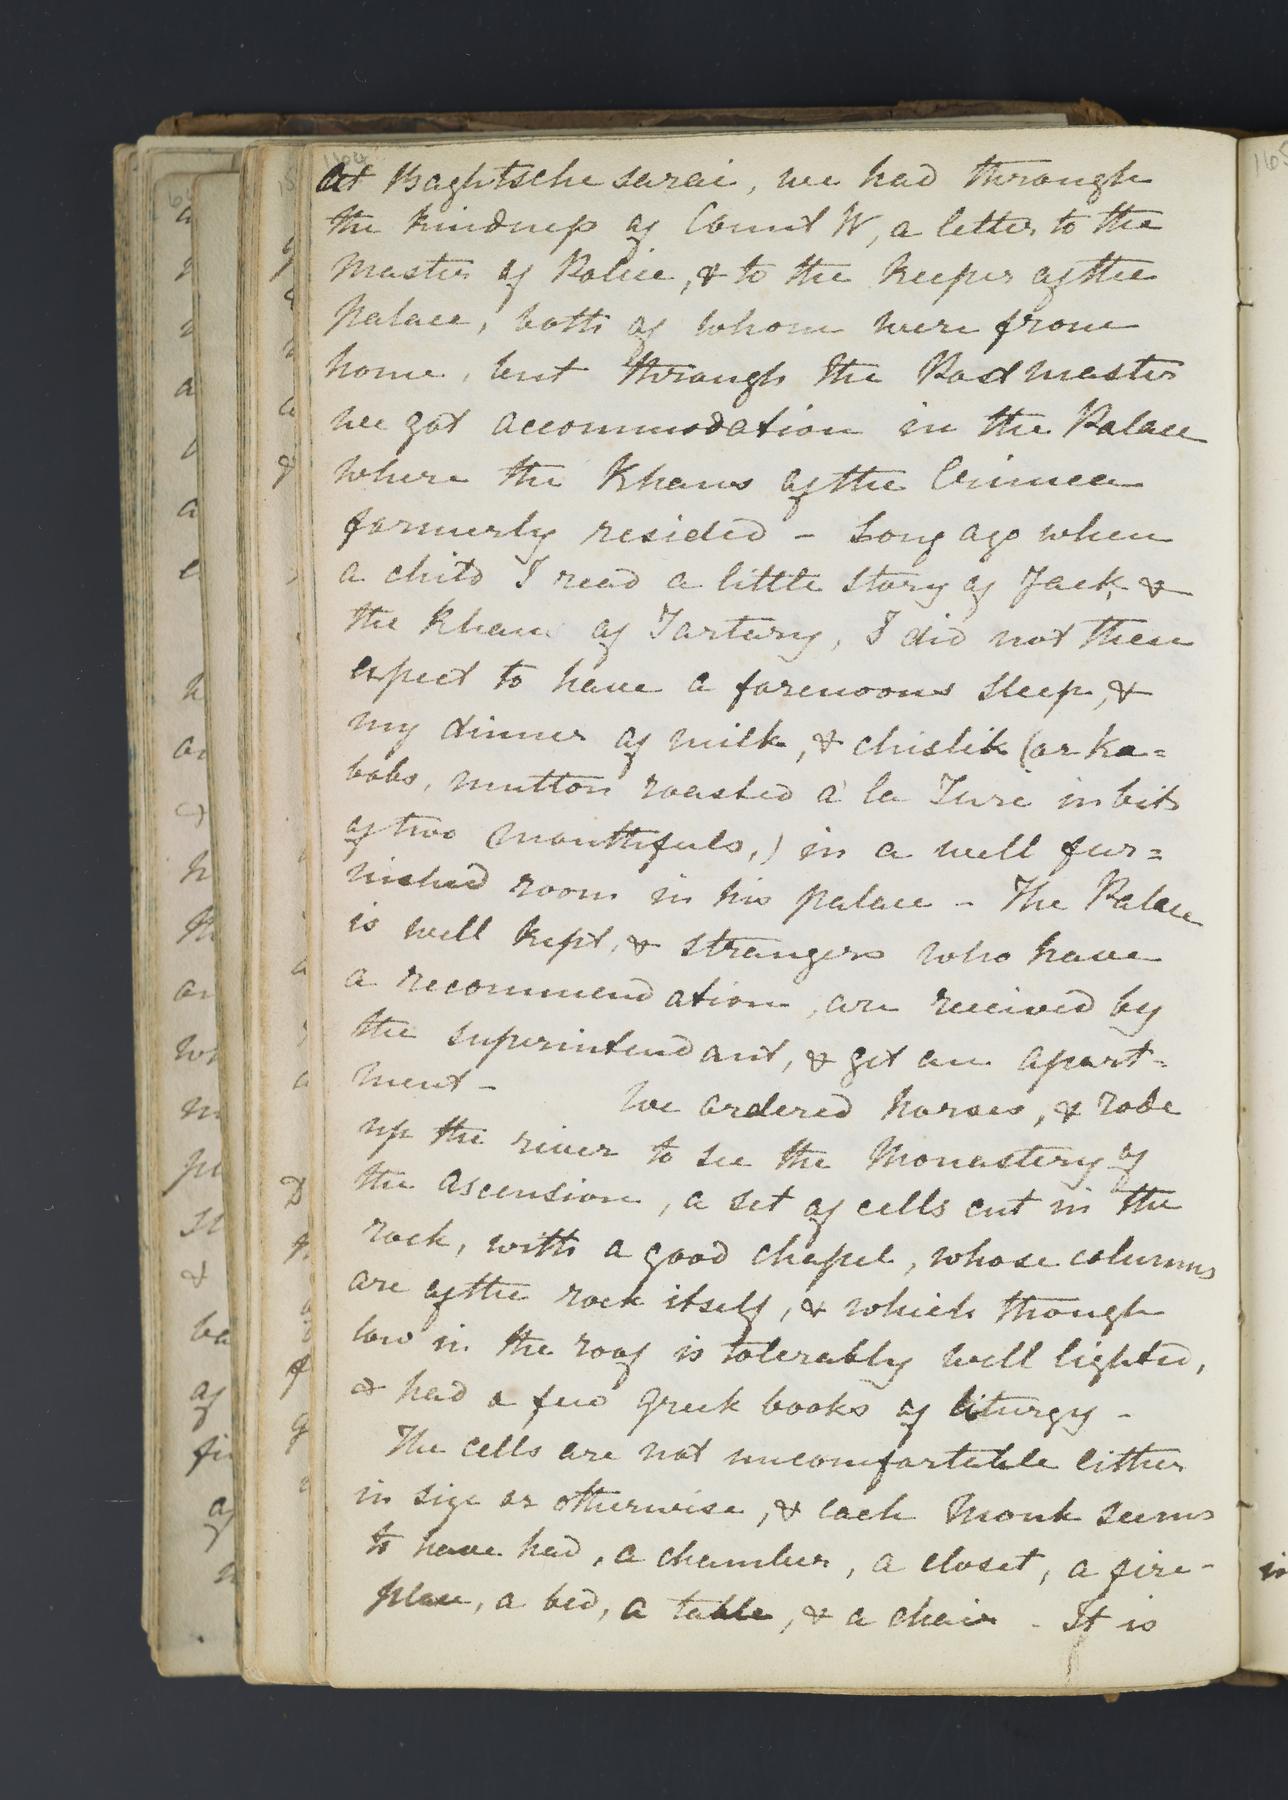 164
At Baghtsche sarai, we had through
the kindness of Count W, a letter to the
Master of Police, & to the keeper of the
Palace, both of whom were from
home, but through the Postmaster
we got accommodation in the Palace
where the Khans of the Crimea
formerly resided - Long ago when
a child I read a little story of Jack &
the Kham of Tartary, I did not then
expect to have a forenoons sleep, &
my dinner of milk, & chislik (or ka=
babs, mutton roasted a la Turc in bits
of two mouthfuls,) in a well fur=
nished room in his palace - The Palace
is well kept, & strangers who have
a recommendation, are received by
the superintendant, & get an apart=
ment - We ordered horses, & rode
up the river to see the Monastery of
the Ascension, a set of cells cut in the
rock, with a good chapel, whose columns
are of the rock itself, & which though
low in the roof is tolerably well lighted,
& had a few Greek books of liturgy -
The cells are not uncomfortable either
in size or otherwise, & each Monk seems
to have had, a chamber, a closet, a fire-
place, a bed, a table, & a chair - It is
165
in